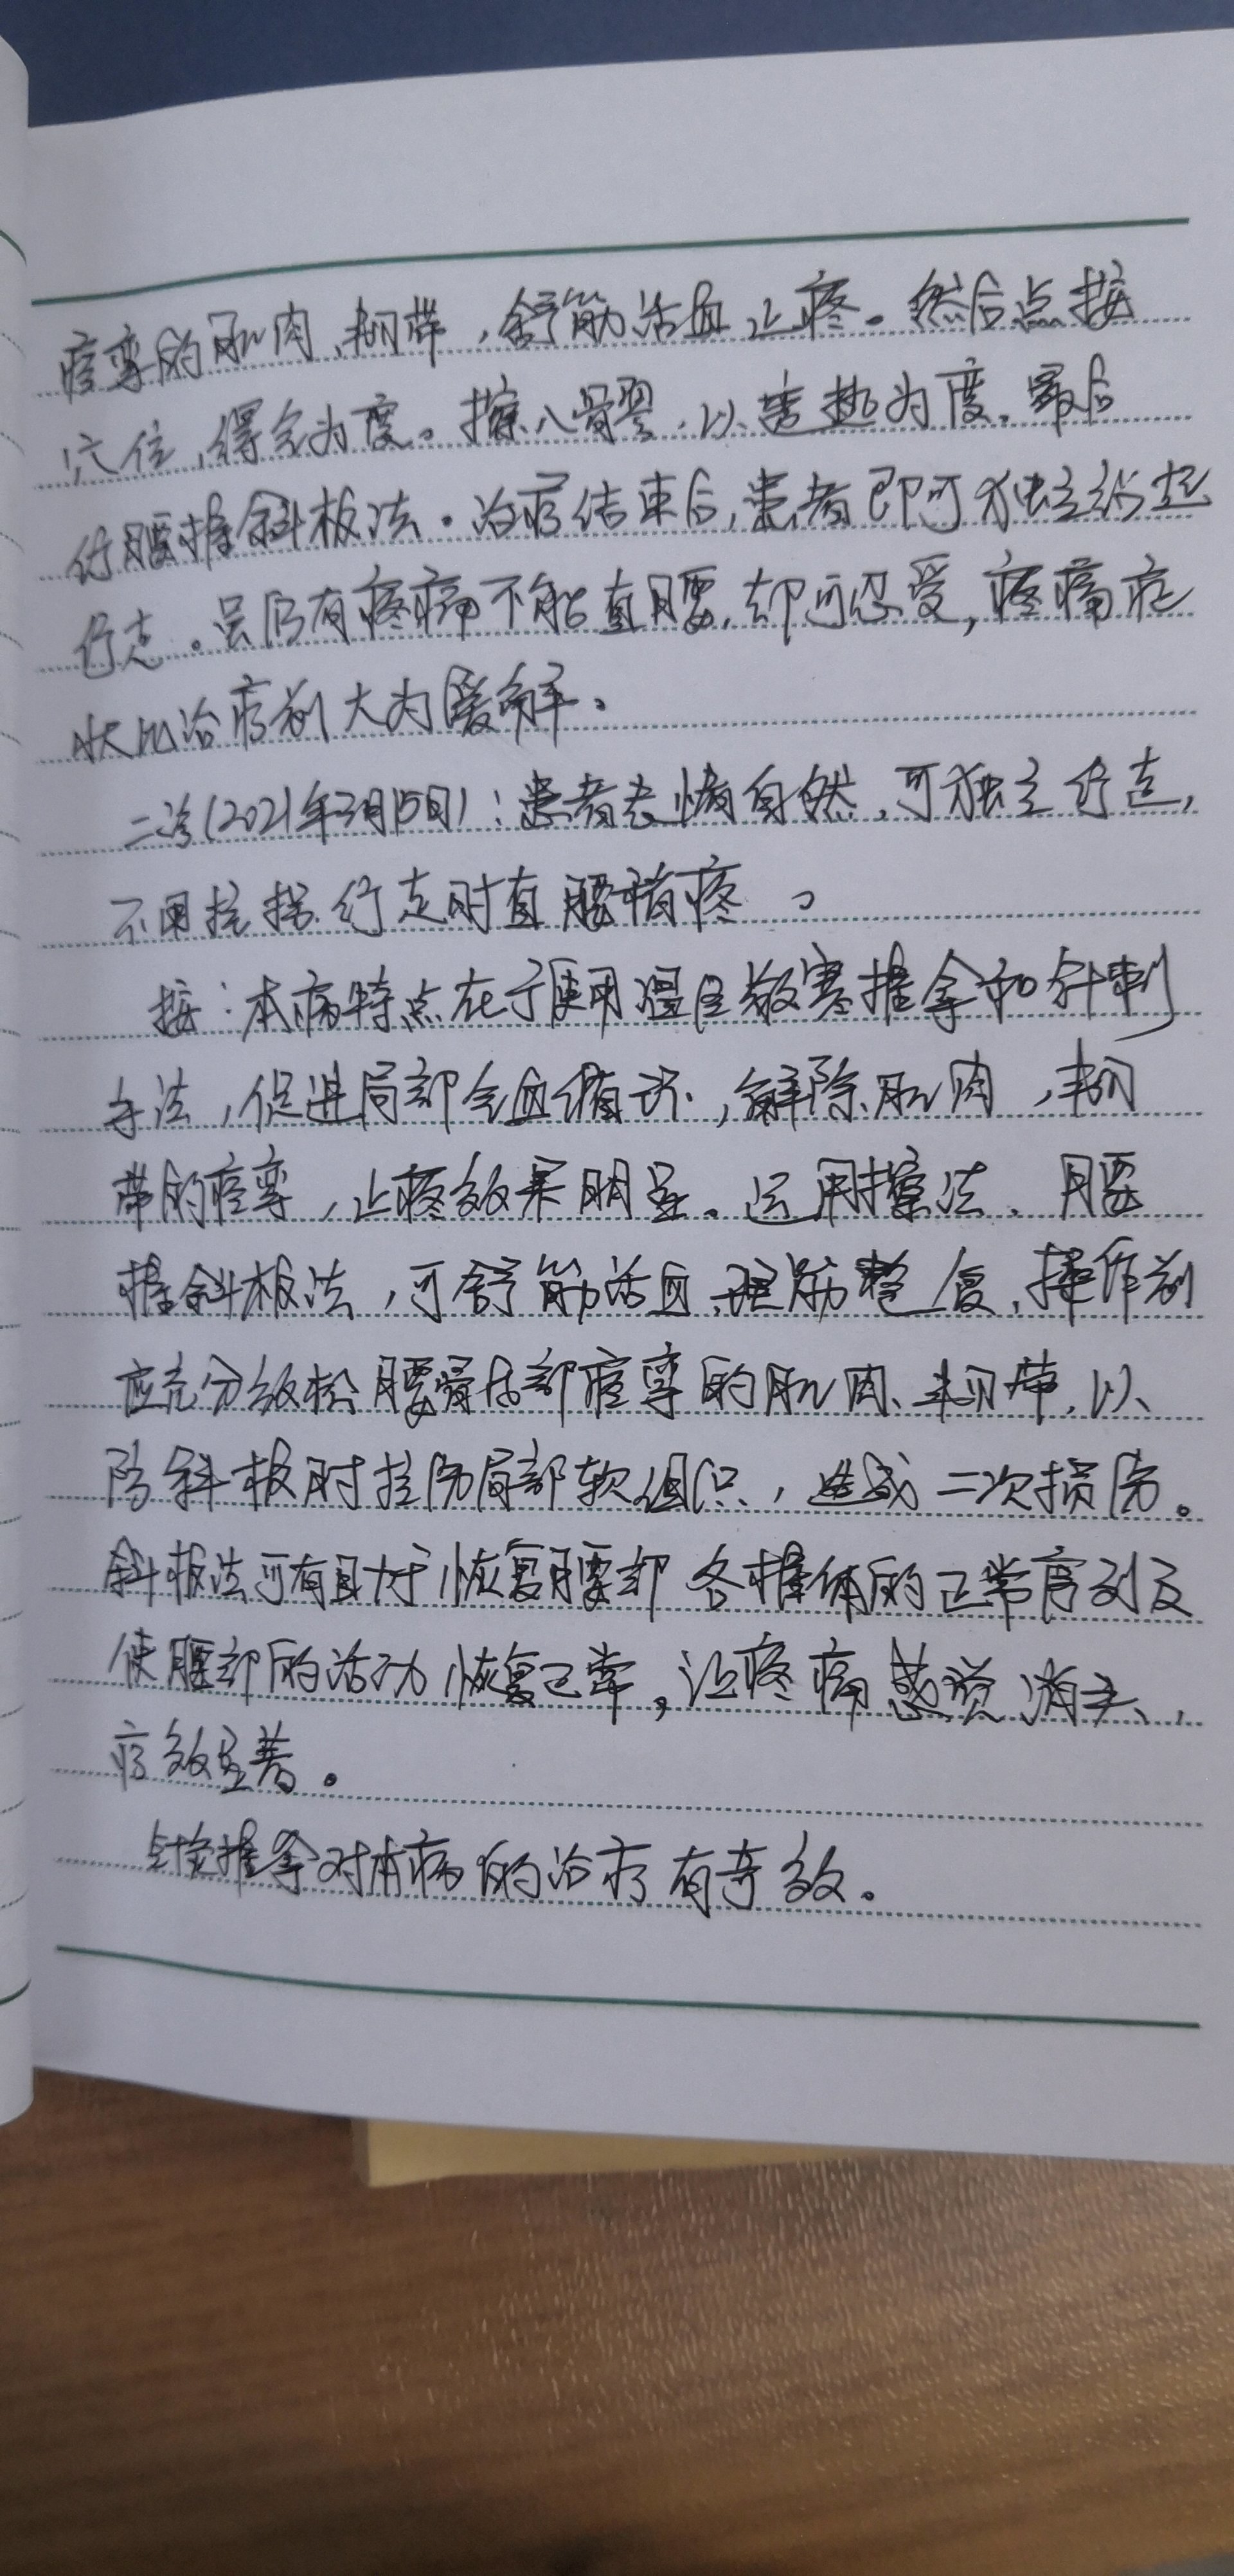 痉挛的肌肉、韧带，舒筋活血止疼。然后点按
穴位，得气为度。擦八髎，以透热为度。最后
行腰椎斜板法。治疗结束后，患者即可独立站起
行走。虽仍有疼痛不能直腰，却可忍受，疼痛症
状比治疗前大为缓解。
二诊(2021年3月15日)：患者表情自然，可独立行走，
不用拄拐，行走时直腰稍疼。
按：本病特点在于使用温经散寒推拿和针刺
手法，促进局部气血循环，解除肌肉，韧
带的痉挛，止疼效果明显。运用擦法、腰
椎斜板法，可舒筋活血、理筋整复，操作前
应充分放松腰骨局部痉挛的肌肉、韧带，以
防斜板时拉伤局部软组织，造成二次损伤。
斜板法可有助于恢复腰部各椎体的正常序列及
使腰部的活动恢复正常，让疼痛感觉消失，
疗效显著。
针灸推拿对本病的治疗有奇效。